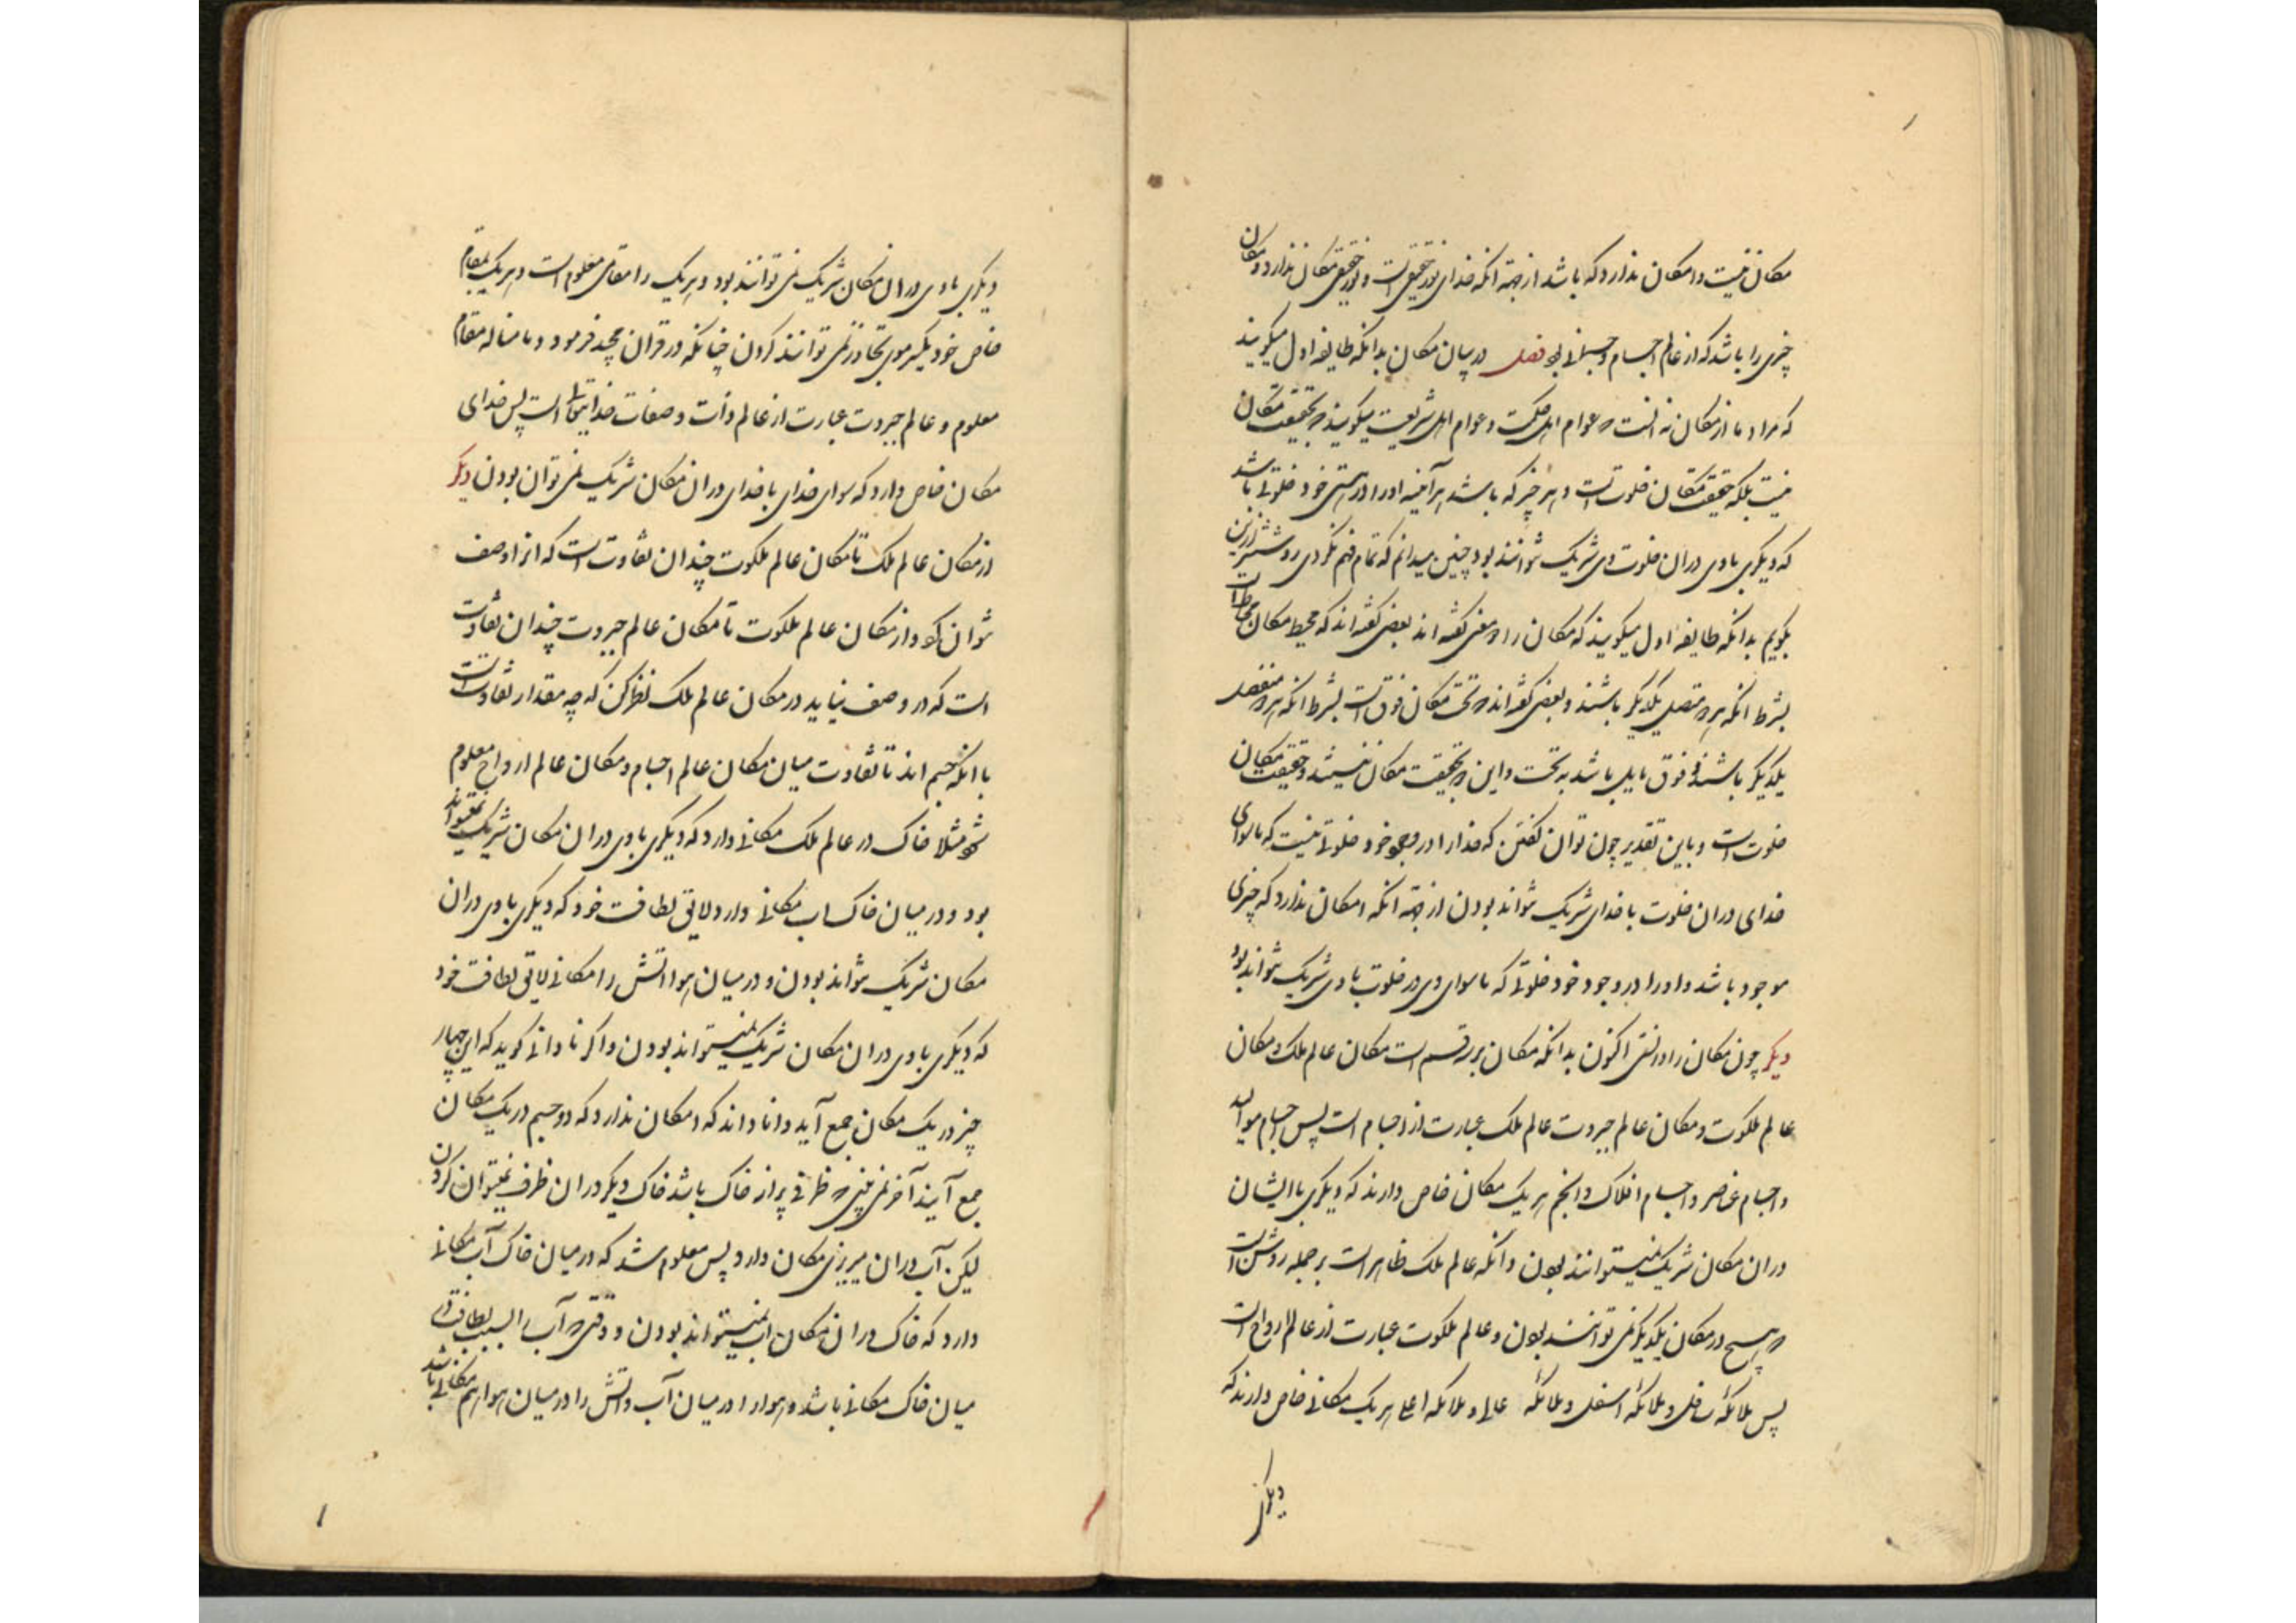 مکان نیست و امکان ندارد که باشد از جهة آنکه خدای نور حقیقی است و نور حقیقی مکان ندارد و مکان
چیزی را باشد که از عالم اجسام و جسمانی بود فصل در بیان مکان بدانکه طایفه اول میگویند
که مراد ما از مکان نه آنست که عوام اهل حکمت و عوام اهل شریعت میگویند که بحقیقت مکان
نیست بلکه حقیقت مکان خلوت است و هر چیز که باشد هر آینه او را در هستی خود خلوتی باشد
که دیگری با وی در ان خلوت وی شریک نتوانند بود چنین میدانم که تمام فهم نکردی روشنتر ازین
بگویم بدانکه طایفه اول میگویند که مکان را دو معنی گفته اند بعضی گفته اند که محیط مکان محاط است
بشرط آنکه هر دو متصل یکدیگر باشند و بعضی گفته اند که تحت مکان فوق است بشرط آنکه هر دو منفصل
یکدیگر باشند و فوق مایل باشد به تحت و این دو بحقیقت مکان نیستند و حقیقت مکان
خلوت است و باین تقدیر چون توان گفتن که خدا را در وجود خود خلوتی نیست که ماسوای
خدای در ان خلوت با خدای شریک نتواند بودن از جهة آنکه امکان ندارد که چیزی
موجود باشد و او را در وجود خود خلوتی که ماسوای وی در خلوت با وی شریک نتواند بود
دیگر چون مکان را دانستی اکنون بدانکه مکان بر سه قسم است مکان عالم ملک و مکان
عالم ملکوت و مکان عالم جبروت عالم ملک عبارت از اجسام است پس اجسام موالید
و اجسام عناصر و اجسام افلاک و انجم هر یک مکان خاص دارند که دیگری با ایشان
در ان مکان شریک نمیتوانند بودن و آنکه عالم ملک ظاهر است بر جمله روشن است
که هیچ در مکان یکدیگر نمی توانند بودن و عالم ملکوت عبارت از عالم ارواح است
پس ملائکه سافل و ملائکه اسفل و ملائکه عالی و ملائکه اعلی هر یک مکانی خاص دارند که
دیگر
دیگری با وی در ان مکان شریک نمی توانند بود و هر یک را مقامی معلوم است و هر یک بمقام
خاص خود یک سر موی تجاوز نمی توانند کردن چنانکه در قران مجید فرمود و ما منا الا له مقام
معلوم و عالم جبروت عبارت از عالم ذات و صفات خدایتعالی است پس خدای
مکان خاص دارد که سوای خدای با خدای در ان مکان شریک نمی توان بودن دیگر
از مکان عالم ملک تا مکان عالم ملکوت چندان تفاوت است که انرا وصف
نتوان کرد و از مکان عالم ملکوت تا مکان عالم جبروت چندان تفاوت
است که در وصف نیاید در مکان عالم ملک نظر کن که چه مقدار تفاوت است
با آنکه جسم اند تا تفاوت میان مکان عالم اجسام و مکان عالم ارواح معلوم
شود مثلا خاک در عالم ملک مکانی دارد که دیگری با وی در ان مکان شریک نمیتواند
بود و در میان خاک اب مکانی دارد لایق لطافت خود که دیگری با وی در ان
مکان شریک نتواند بودن و در میان هوا اتش را مکانی لایق لطافت خود
که دیگری با وی در ان مکان شریک نمیتواند بودن و اگر نادانی گوید که این چهار
چیز در یک مکان جمع آید و انا داند که امکان ندارد که دو جسم در یک مکان
جمع آیند آخر نمی بینی که ظرفی پر از خاک باشد خاک دیگر در ان ظرف نمیتوان کردن
لیکن آب در ان میریزی مکان دارد پس معلوم شد که در میان خاک آب مکانی
دارد که خاک در ان مکان اب نمیتواند بودن و وقتی که آب را بسبب لطافت در
میان خاک مکانی باشد و هوا را در میان آب و اتش را در میان هوا هم مکانی باشد